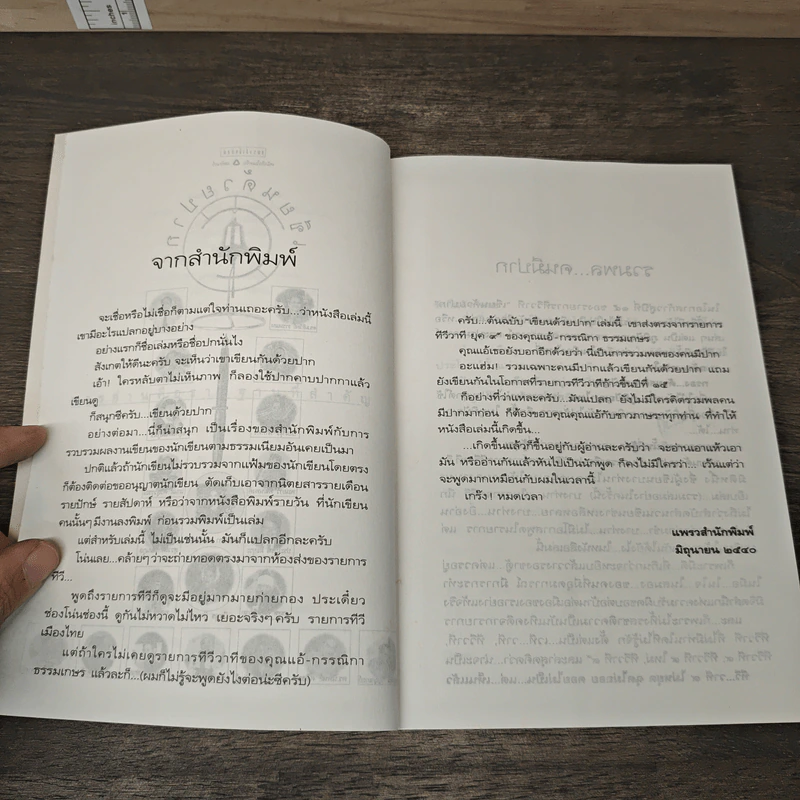 inches
จากสำนักพิมพ์
จะเชื่อหรือไม่เชื่อก็ตามแต่ใจท่านเถอะครับ...ว่าหนังสือเล่มนี้
เขามีอะไรแปลกอยู่บางอย่าง
อย่างแรกก็ชื่อเล่มหรือชื่อปกนั่นไง
สังเกตให้ดีนะครับ จะเห็นว่าเขาเขียนกันด้วยปาก
เอ้า! ใครหลับตาไม่เห็นภาพ ก็ลองใช้ปากคาบปากกาแล้ว
เขียนดู
ก็สนุกซีครับ...เขียนด้วยปาก
อย่างต่อมา...นี่ก็น่าสนุก เป็นเรื่องของสำนักพิมพ์กับการ
รวบรวมผลงานเขียนของนักเขียนตามธรรมเนียมอันเคยเป็นมา
ปกติแล้วถ้านักเขียนไม่รวบรวมจากแฟ้มของนักเขียนโดยตรง
ก็ต้องติดต่อขออนุญาตนักเขียน ตัดเก็บเอาจากนิตยสารรายเดือน
รายปักษ์ รายสัปดาห์ หรือว่าจากหนังสือพิมพ์รายวัน ที่นักเขียน
คนนั้นๆ มีงานลงพิมพ์ ก่อนรวมพิมพ์เป็นเล่ม
แต่สำหรับเล่มนี้ ไม่เป็นเช่นนั้น มันก็แปลกอีกละครับ
โน่นเลย...คล้ายๆ ว่าจะถ่ายทอดตรงมาจากห้องส่งของรายการ
ทีวี...
พูดถึงรายการทีวีก็ดูจะมีอยู่มากมายก่ายกอง ประเดี๋ยว
ช่องโน่นช่องนี้ ดูกันไม่หวาดไม่ไหว เยอะจริงๆ ครับ รายการทีวี
เมืองไทย
แต่ถ้าใครไม่เคยดูรายการทีวีวาทีของคุณแอ้-กรรณิกา
ธรรมเกษร แล้วละก็...(ผมก็ไม่รู้จะพูดยังไงต่อน่ะซีครับ)
ครับ...ต้นฉบับ "เขียนด้วยปาก" เล่มนี้ เขาส่งตรงจากรายการ
ทีวีวาที ยุค ๙ ของคุณแอ้-กรรณิกา ธรรมเกษร
คุณแอ้เธอยังบอกอีกด้วยว่า นี่เป็นการรวมพลของคนมีปาก
อะแฮ่ม! รวมเฉพาะคนมีปากแล้วเขียนกันด้วยปาก แถม
ยังเขียนกันในโอกาสที่รายการทีวีวาทีก้าวขึ้นปีที่ ๑๕
ก็อย่างที่ว่าแหละครับ...มันแปลก ยังไม่มีใครคิดรวมพลคน
มีปากมาก่อน ก็ต้องขอบคุณคุณแอ้กับชาวภาษาฯทุกท่าน ที่ทำให้
หนังสือเล่มนี้เกิดขึ้น...
...เกิดขึ้นแล้วก็ขึ้นอยู่กับผู้อ่านละครับว่า จะอ่านเอาแห้วเอา
มัน หรืออ่านกันแล้วหันไปเป็นนักพูด ก็คงไม่มีใครว่า... เว้นแต่ว่า
จะพูดมากเหมือนกับผมในเวลานี้
เกร๊ง! หมดเวลา
แพรวสำนักพิมพ์
มิถุนายน ๒๕๔๐